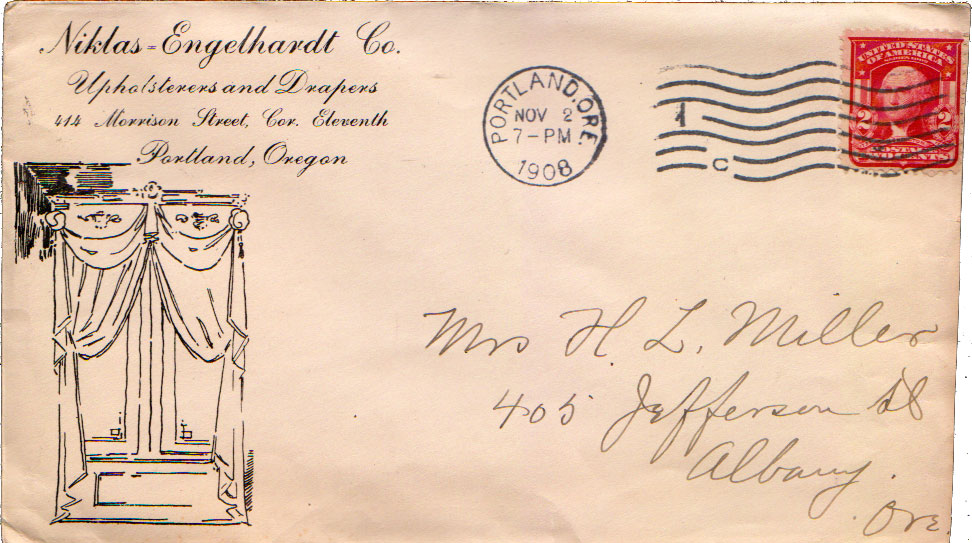 Niklas-Engelhardt Co.
Upholsterers and Drapers
414 Morrison Street, Cor. Eleventh
Portland, Oregon
PORTLAND, ORE.
NOV 2
7-PM
1908
1
C
UNITED STATES
OF AMERICA
2 2
CENTS
Mrs H. L. Miller
405 Jefferson St
Albany.
Ore.